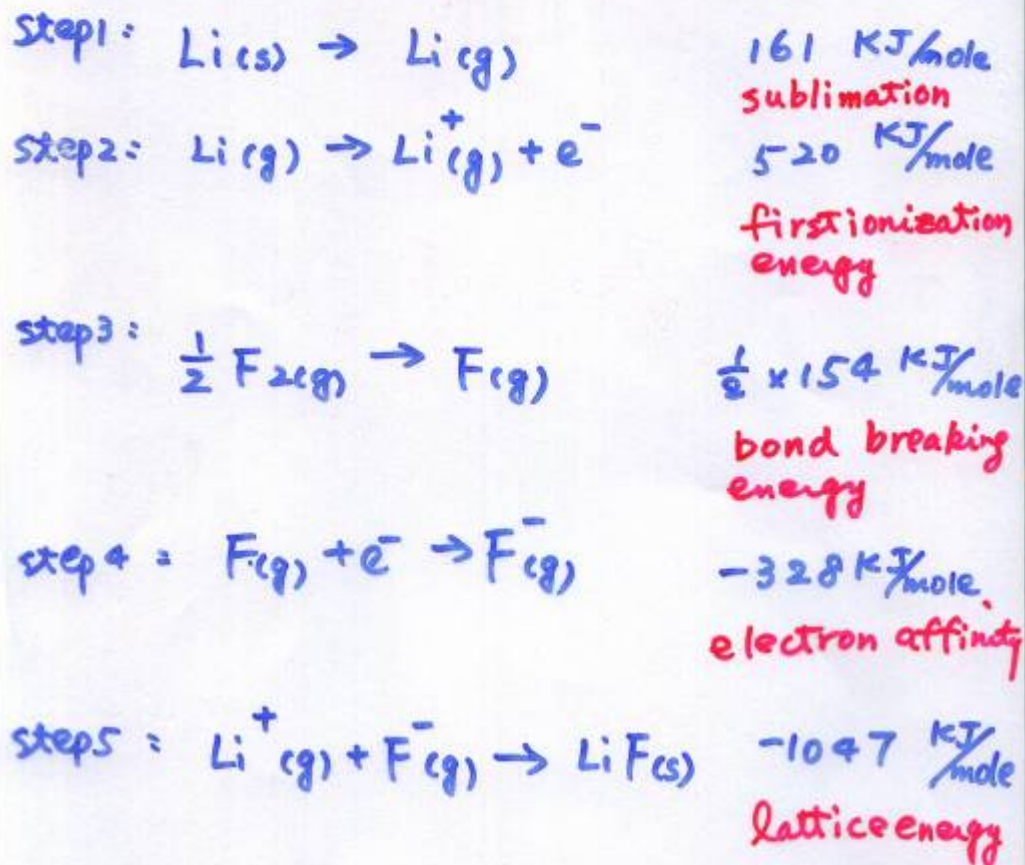 step1: Li(s) → Li(g) 161 KJ/mole
sublimation
step2: Li(g) → Li⁺(g) + e⁻ 520 KJ/mole
first ionization
energy
step3: ½ F₂(g) → F(g) ½ x 154 KJ/mole
bond breaking
energy
step4: F(g) + e⁻ → F⁻(g) -328 KJ/mole.
electron affinity
step5: Li⁺(g) + F⁻(g) → LiF(s) -1047 KJ/mole
lattice energy